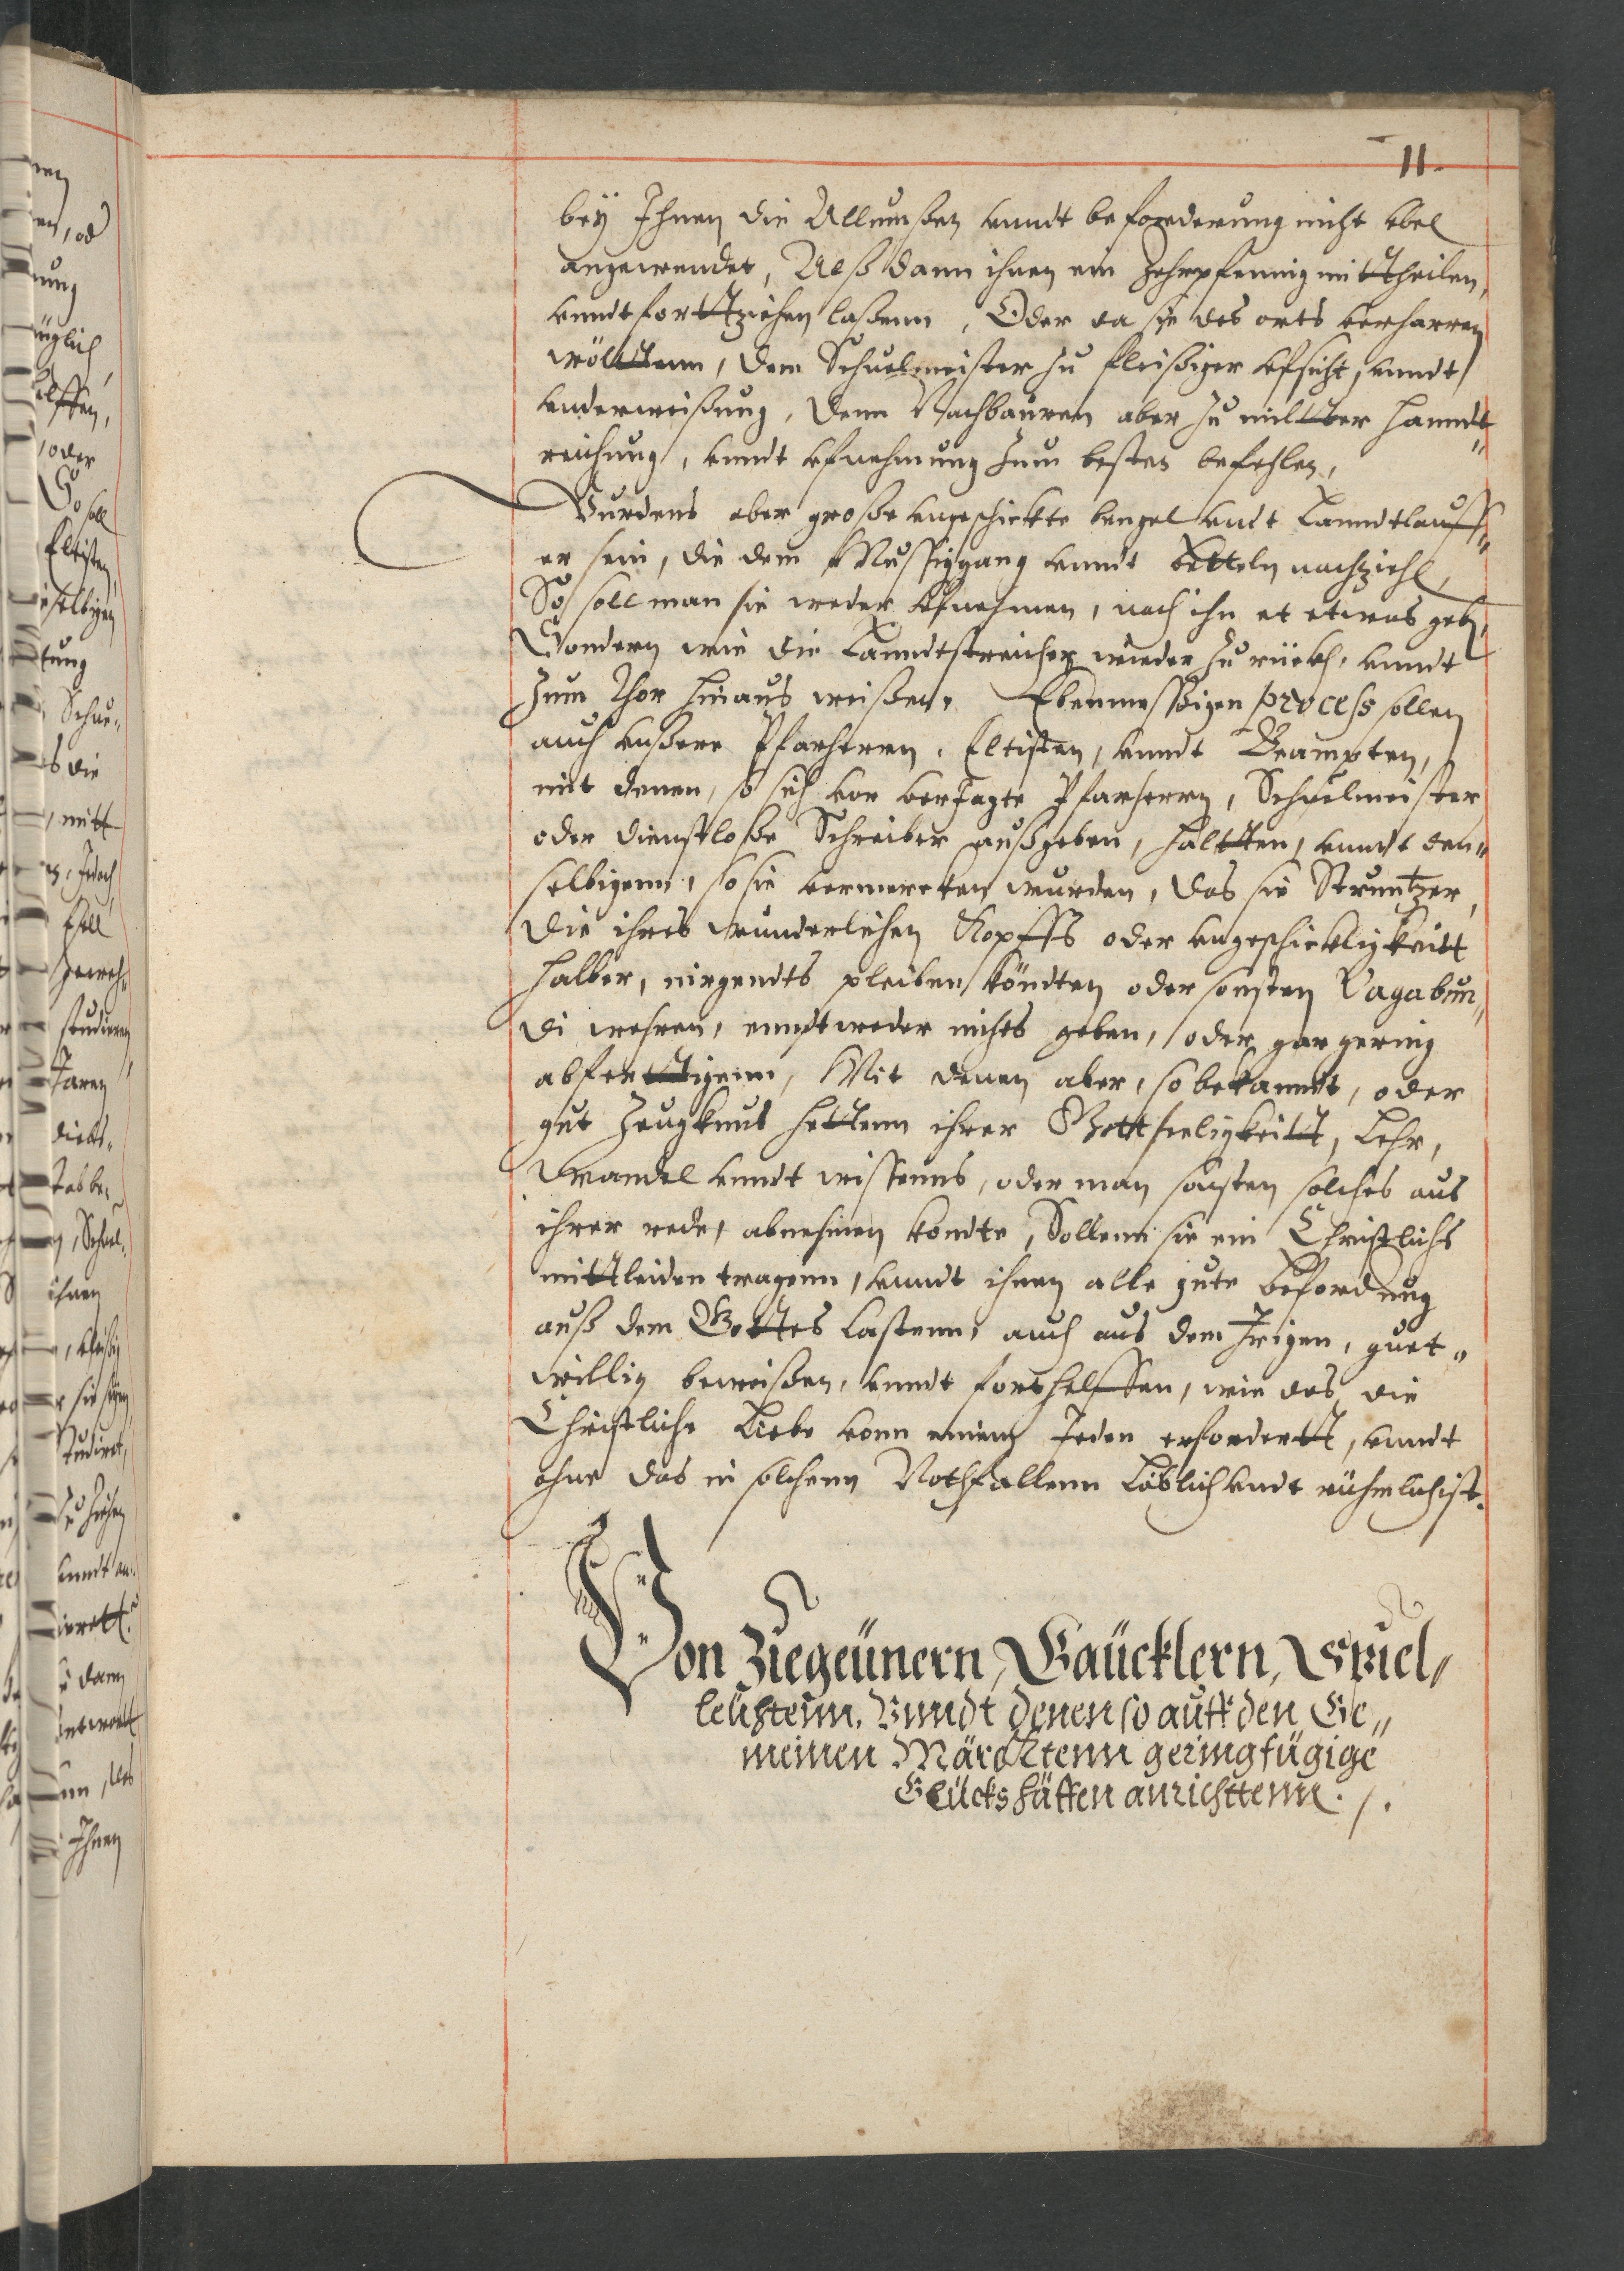 11.
bey Ihnen die Allmußen vnndt beforderung nicht vbel
angewendet, Alß dann ihnen ein Zehrpfennig mittheilen,
vnndt forttziehen laßenn, Oder da sie des orts verharren
wölttenn, dem Schuelmeister zu fleißiger vfsicht, vnndt
vnderweißung, denn Nachbauren aber zu miltter Hanndt"
reichung, vnndt vfnehmung zum besten befehlen,
Wurdens aber große vngeschickte bengel vndt Lanndtlauff"
er sein, die dem Mussiggang vnndt betteln nachziehen,
So soll man sie weder vfnehmen, noch ihn et etwas geben,
Sondern wie die Lanndtstreicher wieder zu rückh, vnndt
zum Thor hinaus weißen. Ebenmessigen process sollen
auch vnßere Pfarherrn, Eltisten, vnndt Beampten,
mit denen, so sich vor verJagte Pfarherrn, Schuelmeister
oder dienstloße Schreiber außgeben, haltten, vnndt den"
selbigenn, so sie vermercken wurden, das sie Struntzer,
die ihres wunderlichen Kopffs oder vngeschickligkeitt
halber, nirgendts pleiben köndten oder sonsten Vagabun"
di wehren, enndtweder nichts geben, oder gar gering
abferttigenn, Mit denen aber, so bekanndt, oder
gut Zeugknus hettenn ihrer Gottseeligkeitt, Lehr,
Wandel vnndt wissenns, oder man sonsten solches aus
ihrer rede, abnehmen kondte, Sollenn sie ein Christlichs
mittleiden tragenn, vnndt ihnen alle gute beforderung
auß dem Gottes Kastenn, auch aus dem Irigen, guet"
willig beweißen, vnndt forthelffen, wie das die
Christliche Liebe vonn einem Jeden erfordertt, vnndt
ohne das in solchenn Nothfallenn Löblich vndt rühmlich ist.
Von Ziegeünern, Gaücklern, Spiel"
leuhtenn, Vnndt denen so auff den Ge"
meinen Märcktenn geringfügige
Glückshäffen anrichttenn. /.